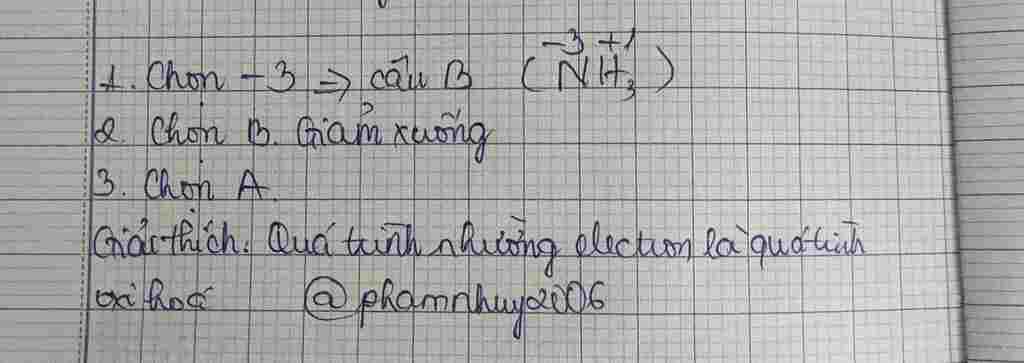 1. Chọn -3 => câu B (N⁻³H₃⁺¹)
2. Chọn B. Giảm xuống
3. Chọn A.
Giải thích. Quá trình nhường electron là quá trình
oxi hoá @phamnhuy2006